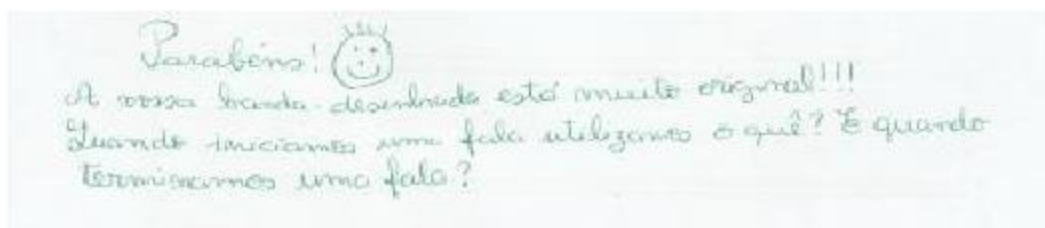 Parabéns!
A vossa banda desenhada está muito original!!!
Quando iniciamos uma fala utilizamos o quê? E quando
terminamos uma fala?